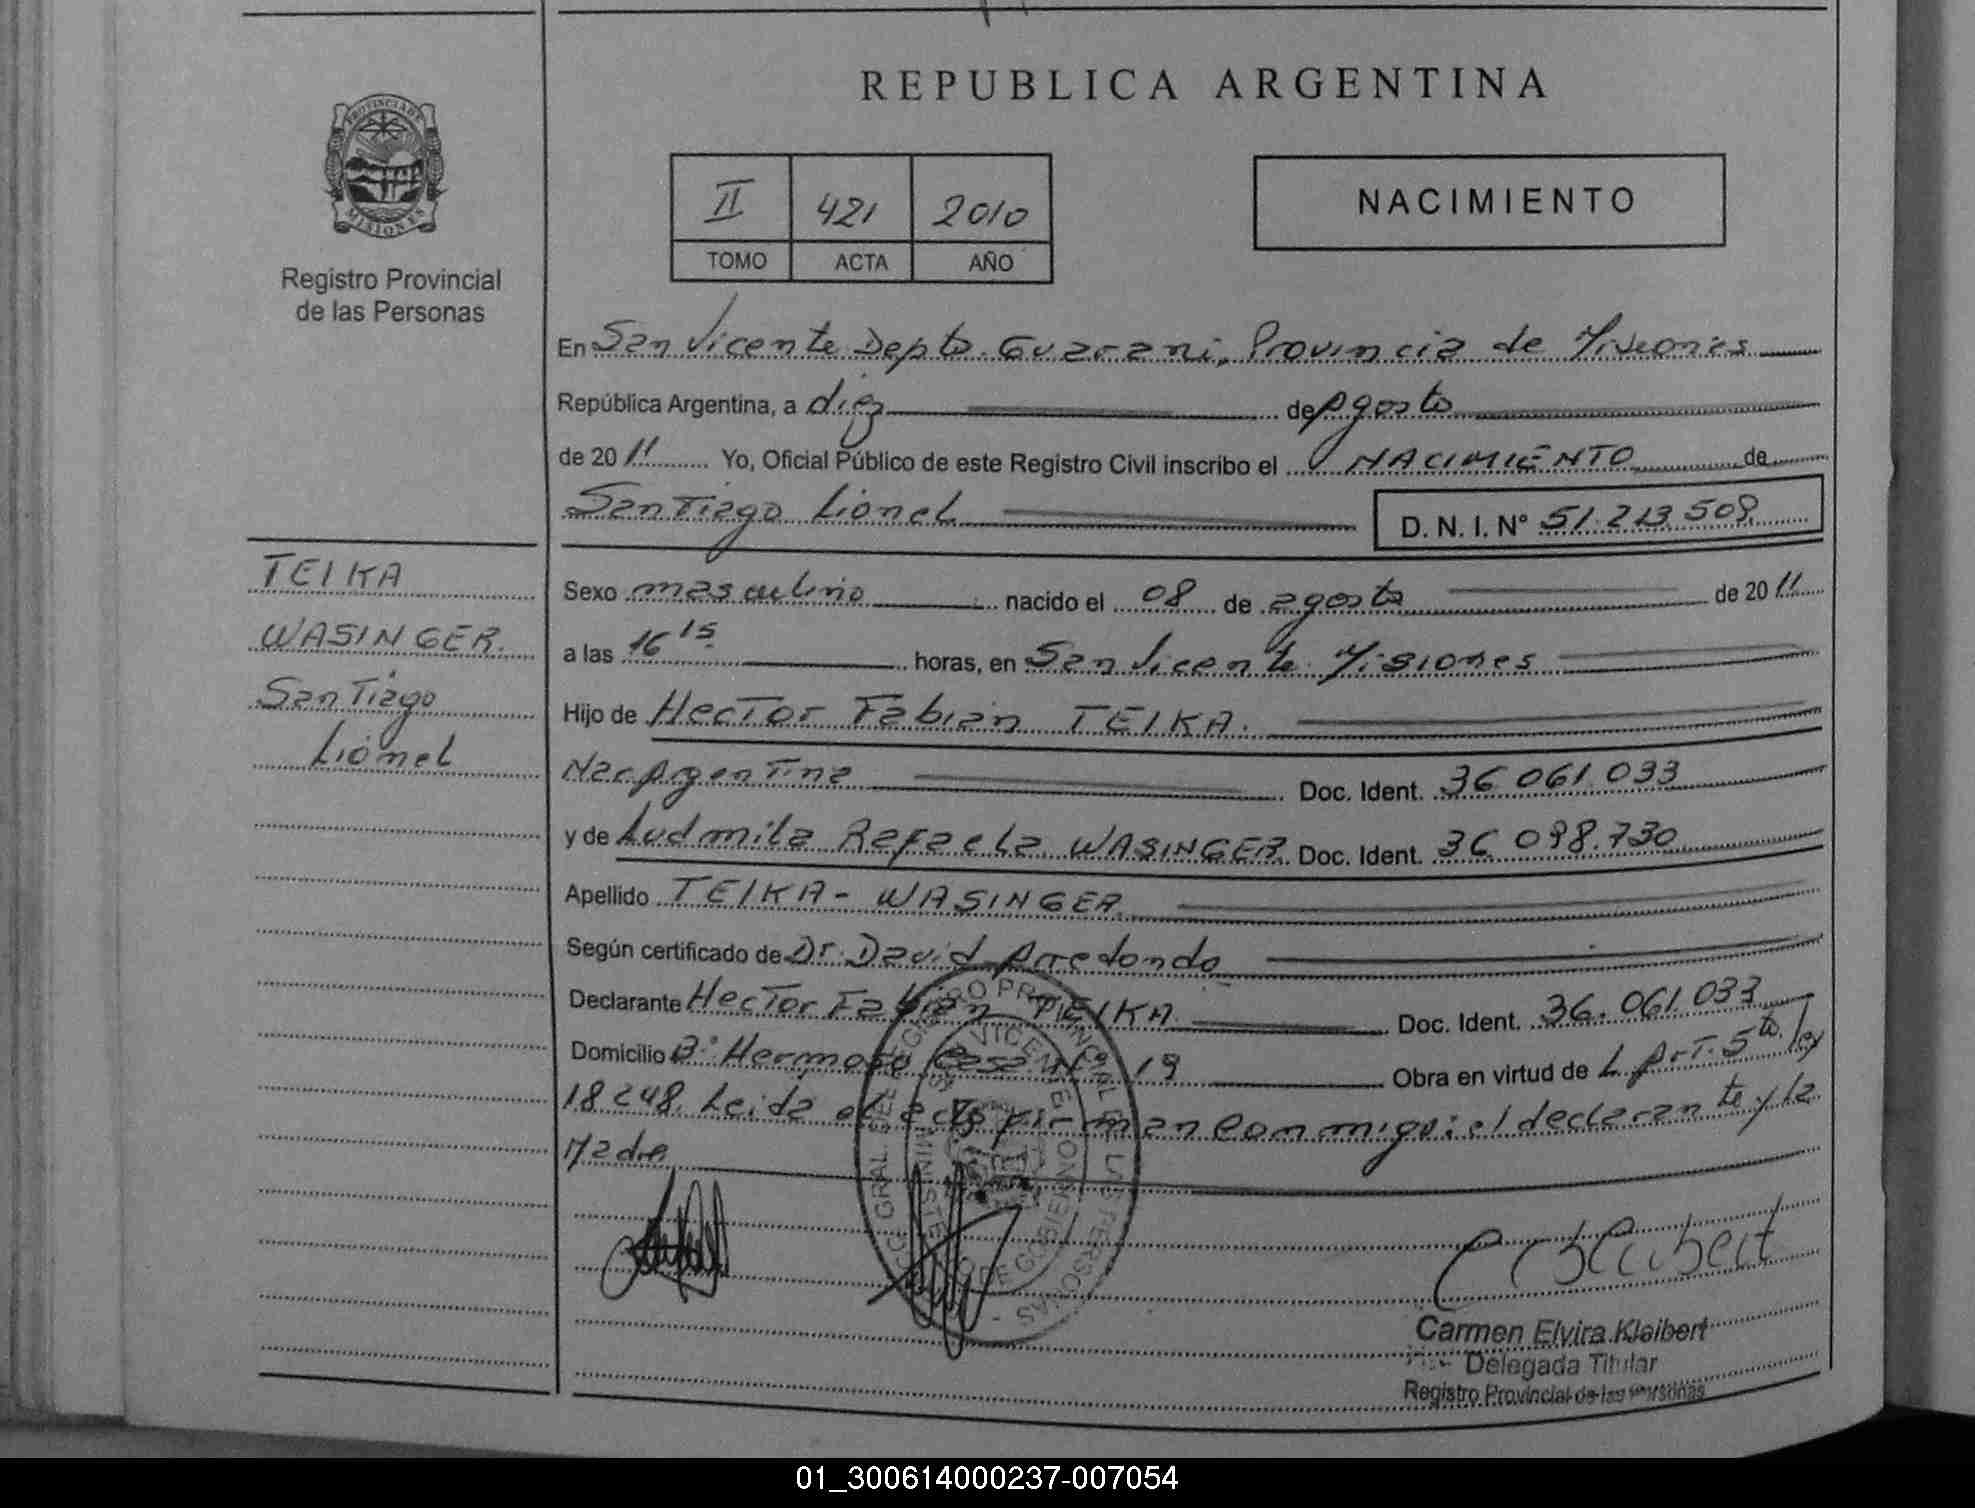 REPUBLICA ARGENTINA
PROVINCIA DE
MISIONES
Registro Provincial
de las Personas
II 421 2010
TOMO ACTA AÑO
NACIMIENTO
En San Vicente Depto. Guarani, Provincia de Misiones
República Argentina, a diez de Agosto
de 2011 Yo, Oficial Público de este Registro Civil inscribo el NACIMIENTO de
Santiago Lionel D. N. I. N° 51.213.509
TEIKA
WASINGER.
Santiago
Lionel
Sexo masculino nacido el 08 de agosto de 2011
a las 16 15 horas, en San Vicente. Misiones
Hijo de Hector Fabian TEIKA.
Nac Argentina Doc. Ident. 36 061.033
y de Ludmila Rafaela WASINGER. Doc. Ident. 36 098.730
Apellido TEIKA - WASINGER
Según certificado de Dr. David Arredondo
Declarante Hector Fabian TEIKA Doc. Ident. 36.061.033
Domicilio B° Hermoso Casa N° 19 Obra en virtud de L Art. 5to ley
18248. Leida el acta firman conmigo: el declarante y la
Madre
REGISTRO PROVINCIAL DE LAS PERSONAS
SAN VICENTE
MINISTERIO DE GOBIERNO
Carmen Elvira Kleibert
Delegada Titular
Registro Provincial de las Personas
01_300614000237-007054